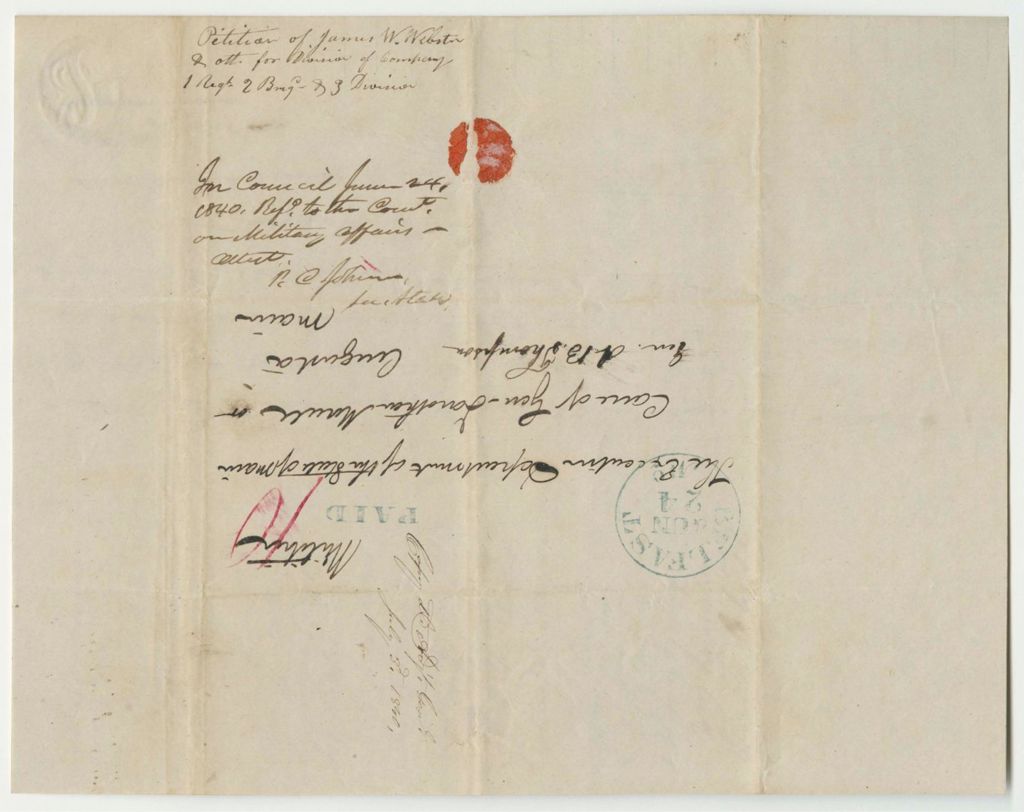 Petition of James W. Webster
& oth. for Division of Company
1 Regt. 2 Brig. & 3 Division
In Council June 24,
1840. Refd. to the Comt.
on Military affairs –
Attest.
P. C. Johnson,
Sec. State
Militia
PAID
The Executive Department of the State of Main
Care of Gen. Jonathan or
Gen. A. B. Thompson
Augusta
Main
BELFAST
JUN
24
Me
July 3d. 1840,